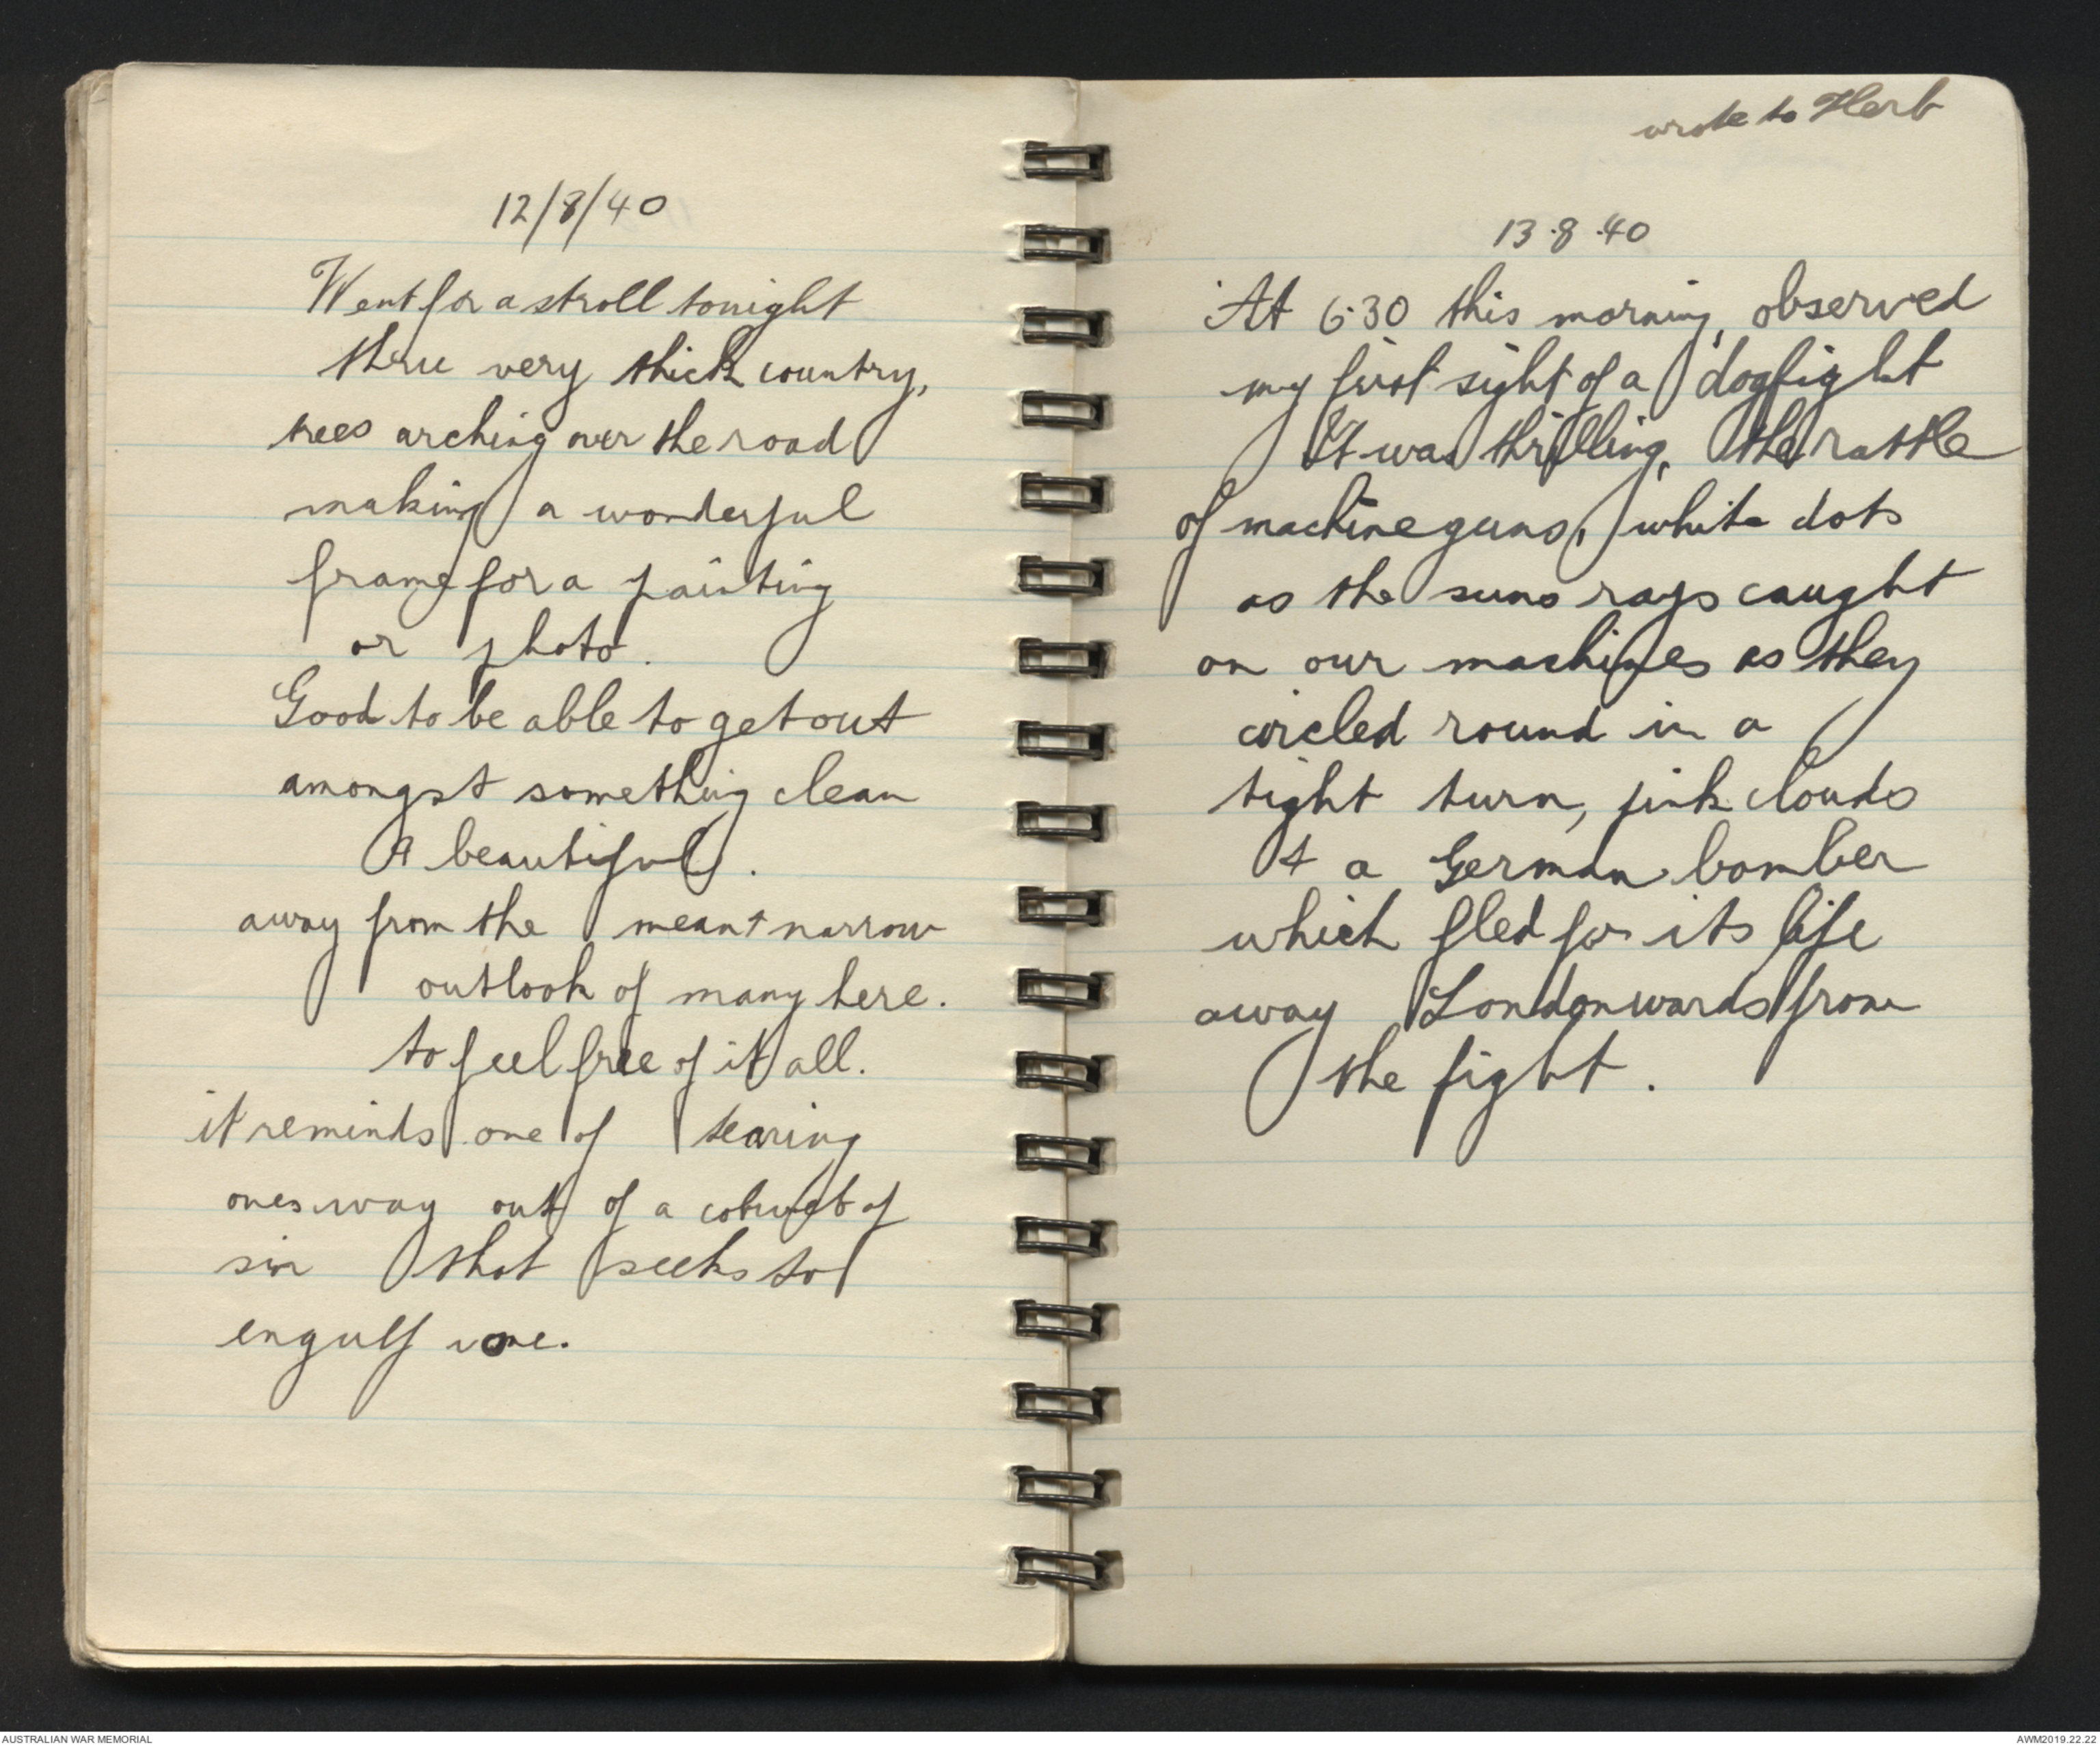 12/8/40
Went for a stroll tonight
thru very thick country,
trees arching over the road
making a wonderful
frame for a painting
or photo.
Good to be able to get out
amongst something clean
& beautiful.
away from the mean & narrow
outlook of many here.
to feel free of it all.
it reminds one of tearing
ones way out of a cobweb of
sin that seeks to
engulf one.
wrote to Herb
13.8.40
At 6.30 this morning, observed
my first sight of a dogfight
It was thrilling, the rattle
of machineguns, white dots
as the suns rays caught
on our machines as they
circled round in a
tight turn, pink clouds
& a German bomber
which fled for its life
away Londonwards from
the fight.
AUSTRALIAN WAR MEMORIAL
AWM2019.22.22